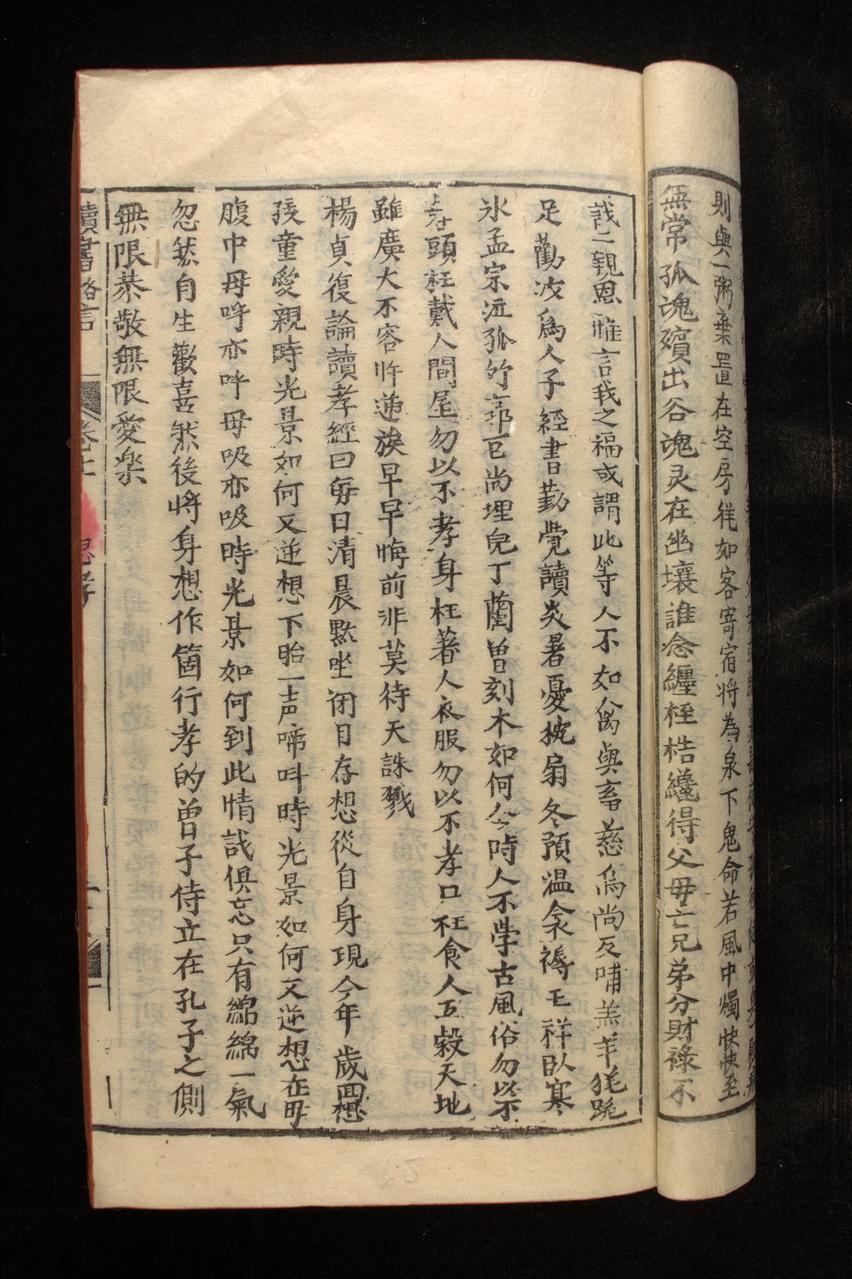 則與一粥棄置在空房徃如客寄宿將為泉下鬼命若風中燭快快至
無常孤魂殯出谷魂灵在幽壤誰念纏桎梏纔得父母亡兄弟分財祿不
識二親恩惟言我之福或謂此等人不如禽與畜慈烏尚反哺羔羊猶跪
足勸汝為人子經書勤覺讀炎暑憂枕扇冬預温衾褥王祥臥寒
氷孟宗泣孤竹郭巨尚埋兒丁蘭曽刻木如何今時人不學古風俗勿以不
孝頭枉戴人間屋勿以不孝身枉著人衣服勿以不孝口枉食人五榖天地
雖廣大不容忤逆族早早悔前非莫待天誅戮
楊貞復論讀孝經曰毎日清晨默坐闭目存想從自身現今年歲囬想
孩童愛親時光景如何又逆想下胎一声啼叫時光景如何又逆想在毋
腹中毋呼亦呼毋吸亦吸時光景如何到此情識俱忘只有綿綿一氣
忽然自生歡喜然後將身想作箇行孝的曽子侍立在孔子之側
無限恭敬無限愛樂
讀書略言 卷上